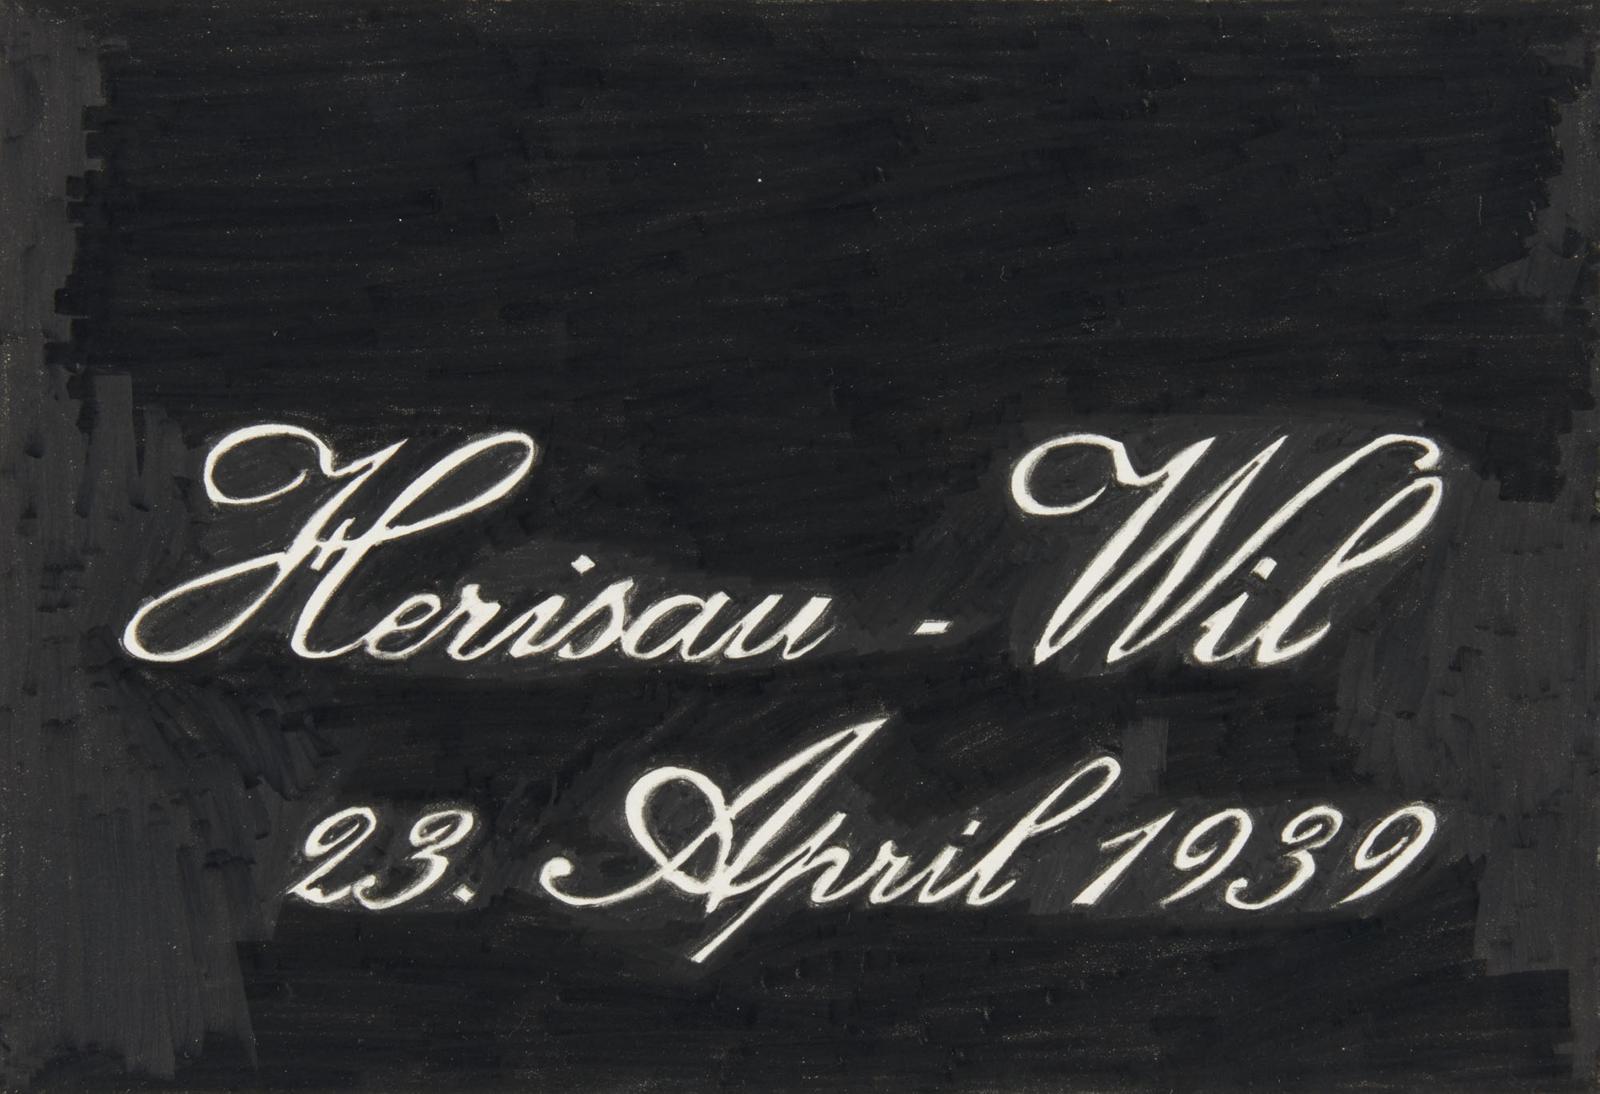 Herisau - Wil
23. April 1939